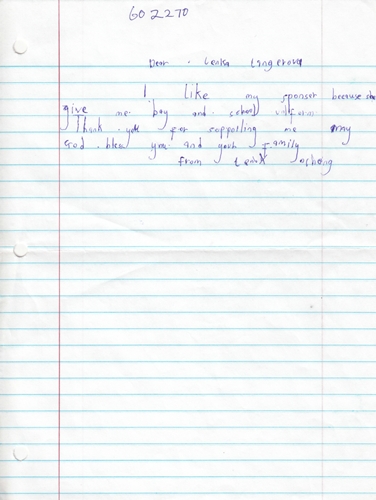 602270
Dear Lenka Langerova
I like my sponsor because she
give me bag and school uniform
Thank you for soppolling me may
God bless you and your Family
from